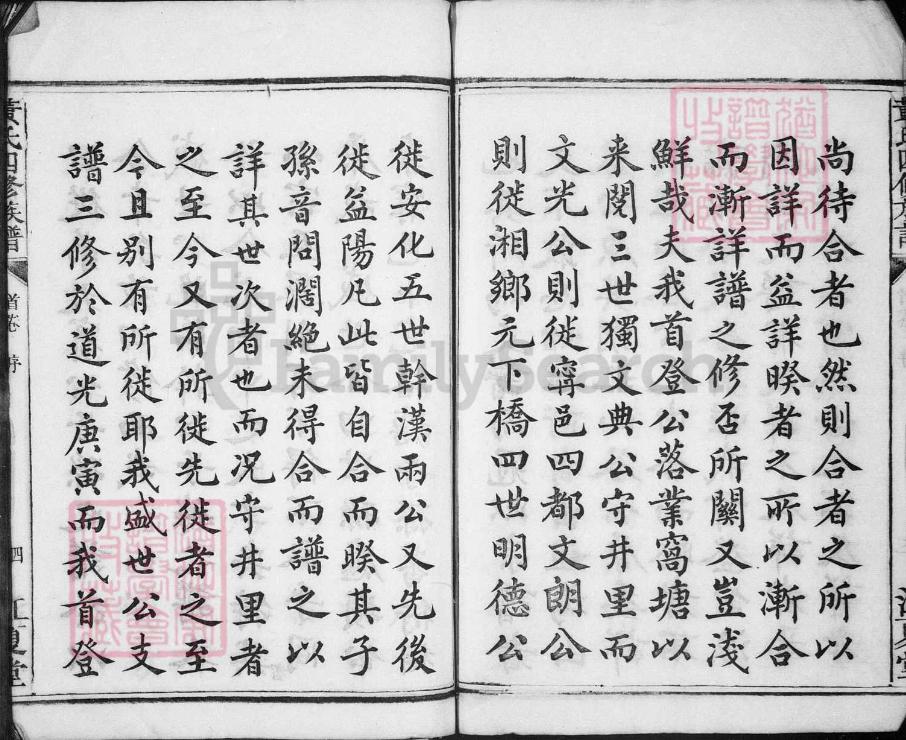 尚待合者也然則合者之所以
因詳而益詳暌者之所以漸合
而漸詳譜之修否所關又豈淺
鮮哉夫我首登公落業窩塘以
来閱三世獨文典公守井里而
文光公則徙寕邑四都文朗公
則徙湘鄉元下橋四世明德公
徙安化五世幹漢兩公又先後
徙益陽凡此皆自合而暌其子
孫音問濶絶未得合而譜之以
詳其世次者也而况守井里者
之至今又有所徙先徙者之至
今且别有所徙耶我盛世公支
譜三修於道光庚寅而我首登
黃氏四修族譜
首卷 序
四
江夏堂
FamilySearch